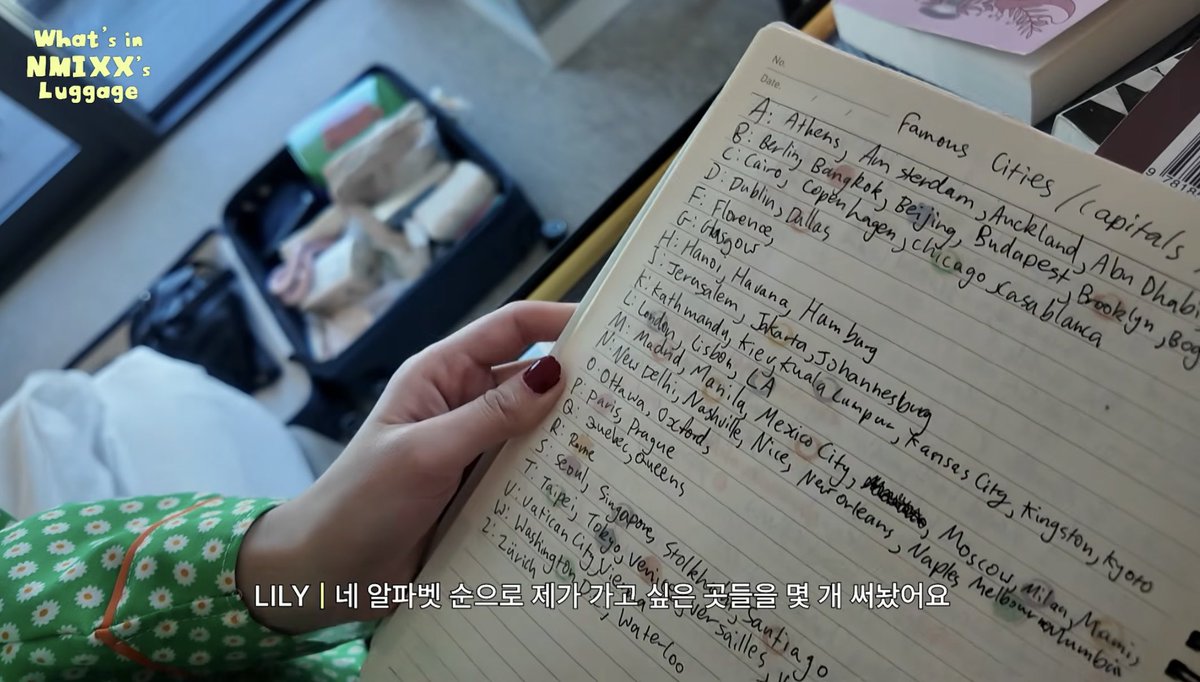 What's in
NMIXX's
Luggage
No.
Date.
Famous Cities / Capitals
A: Athens, Amsterdam, Auckland, Abu Dhabi,
B: Berlin, Bangkok, Beijing, Budapest, Brooklyn, Bog
C: Cairo, Copenhagen, Chicago, Casablanca
D: Dublin, Dallas
F: Florence,
G: Glasgow
H: Hanoi, Havana, Hamburg
J: Jerusalem, Jakarta, Johannesburg
K: Kathmandu, Kiev, Kuala Lumpur, Kansas City, Kingston, Kyoto
L: London, Lisbon, LA
M: Madrid, Manila, Mexico City, Moscow, Milan, Miami, Melbourne
N: New Delhi, Nashville, Nice, New Orleans, Naples
O: Ottawa, Oxford,
P: Paris, Prague
Q: Quebec, Queens
R: Rome
S: Seoul, Singapore, Stockh Santiago
T: Taipei, Tokyo,
V: Vatican City, Vie Versailles
W: Washington D Waterloo
Z: Zürich
LILY | 네 알파벳 순으로 제가 가고 싶은 곳들을 몇 개 써놨어요